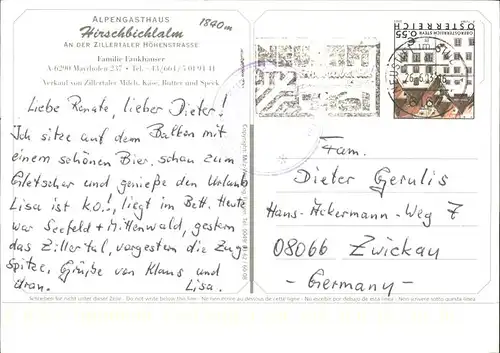 ALPENGASTHAUS
1840m
Hirschbichlalm
AN DER ZILLERTALER HÖHENSTRASSE
Familie Fankhauser
A-6290 Mayrhofen 237 • Tel. +43/664/5 01 91 41
Verkauf von Zillertaler Milch, Käse, Butter und Speck
Liebe Renate, lieber Dieter!
Ich sitze auf dem Balkon mit
einem schönen Bier, schau zum
Gletscher und genieße den Urlaub
Lisa ist k.o.!, liegt im Bett. Heute
war Seefeld + Mittenwald, gestern
das Zillertal, vorgestern die Zug-
Spitze, Grüße von Klaus und
dran. Lisa.
Schreiben Sie nicht unter dieser Zeile - Do not write below this line - Ne rien noter au-dessous de cette ligne - No escribir por debajo de esta línea - Non scrivere sotto questa linea
Copyright
0,55
ÖSTERREICH
OBERÖSTERREICH STEYR
Fam.
Dieter Gerulis
Hans-Ackermann-Weg 7
08066 Zwickau
- Germany -